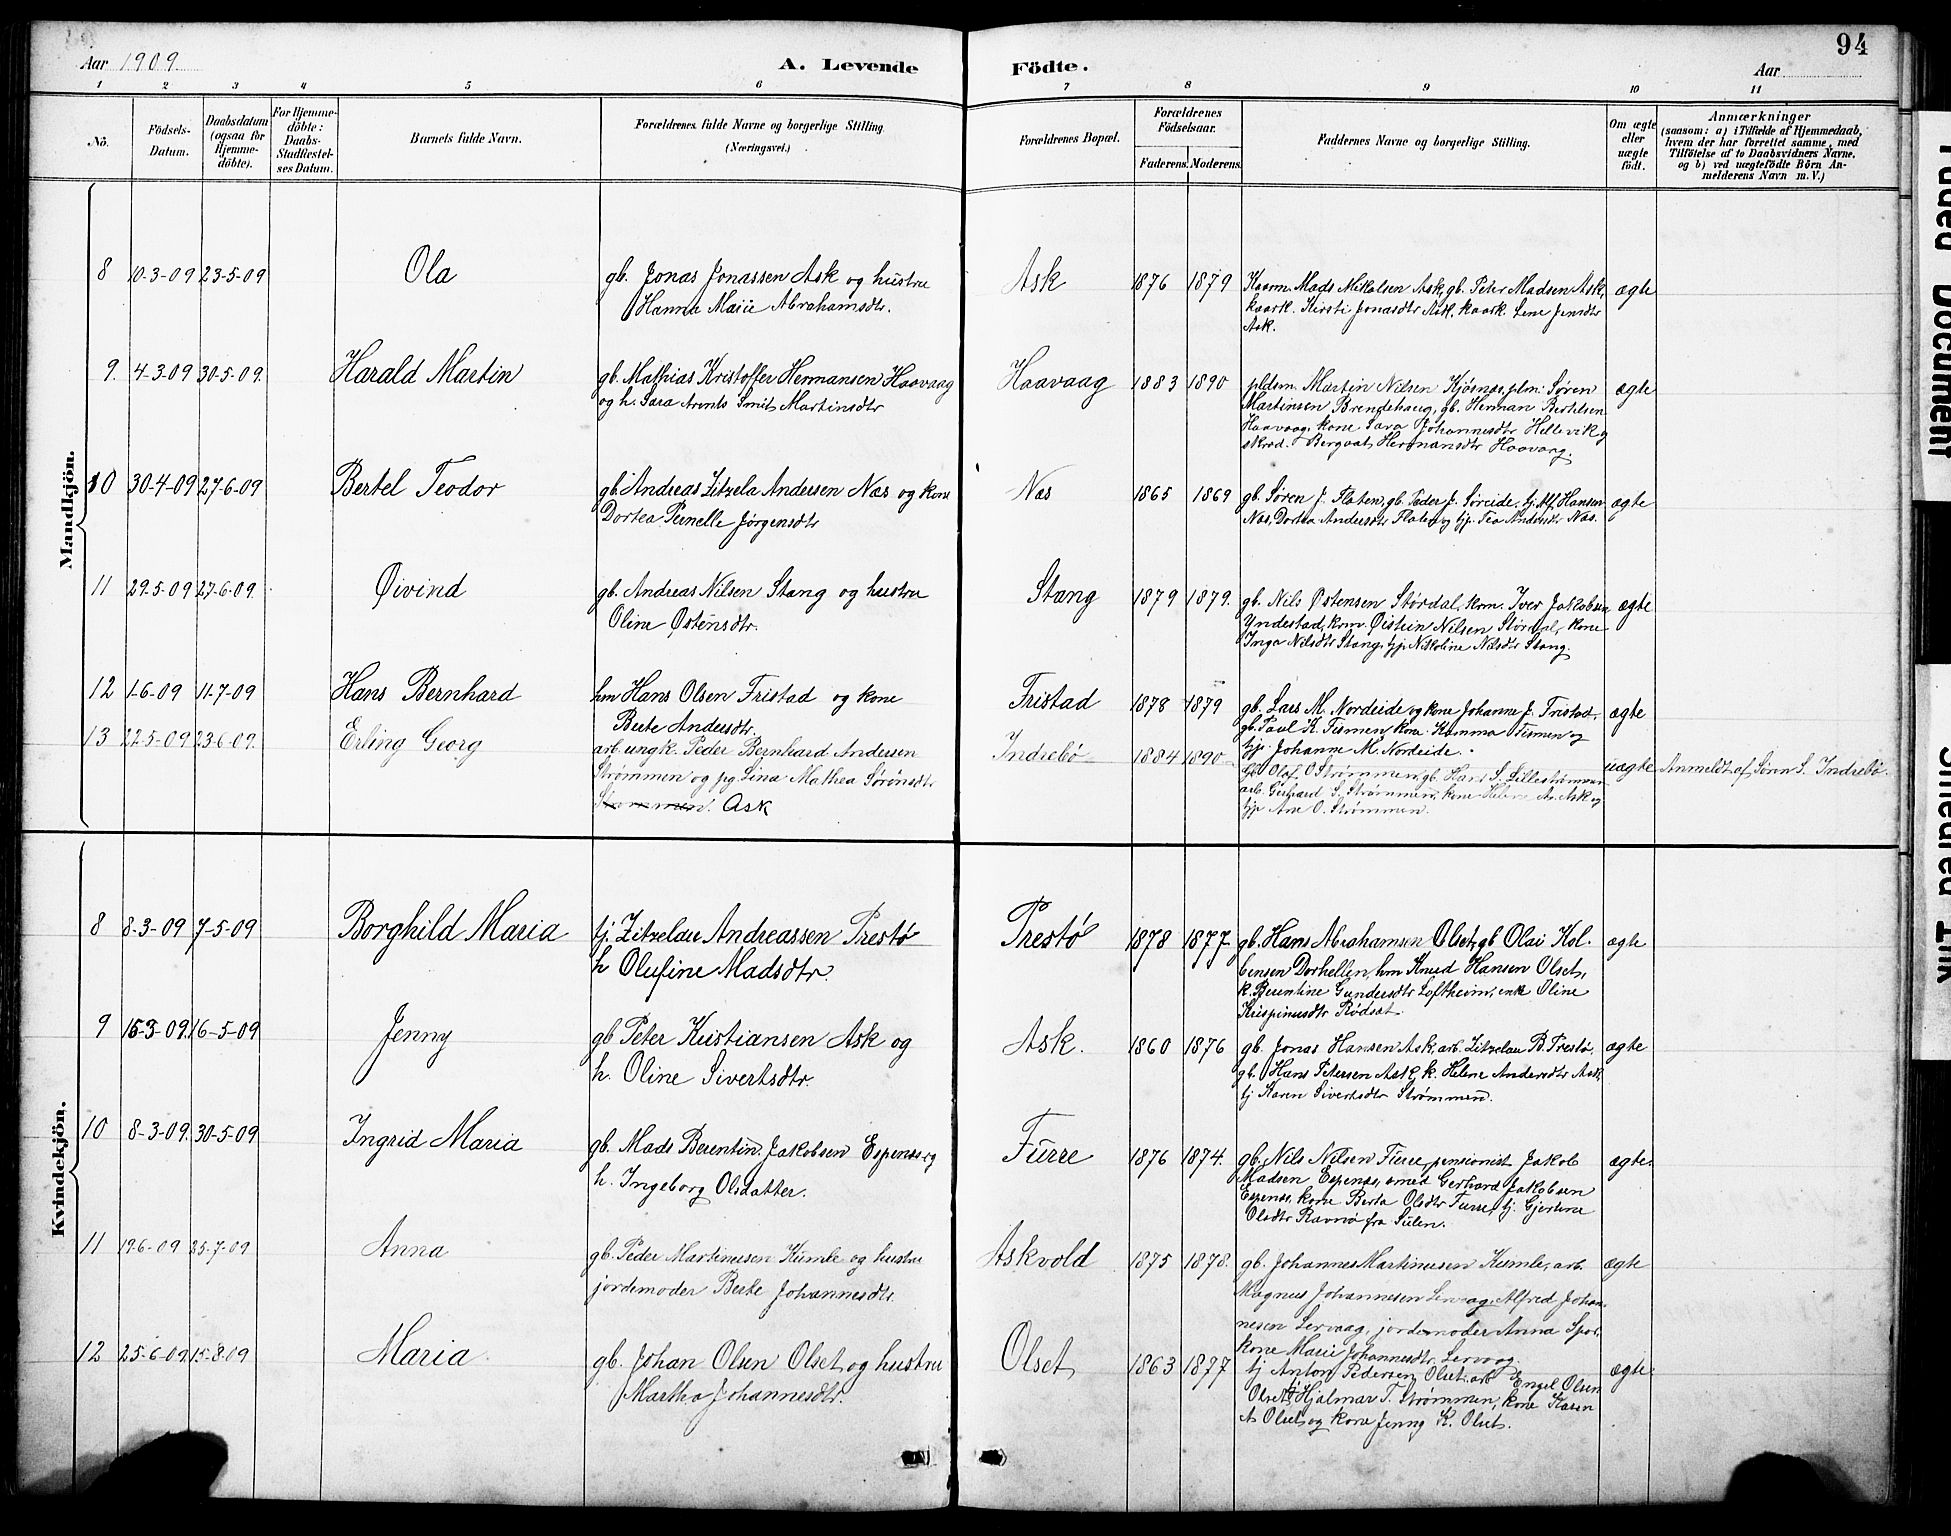 94
Aar 1909
A. Levende Födte.
Aar
1 2 3 4 5 6 7 8 9 10 11
Nö.
Födsels-Datum.
Daabsdatum (ogsaa for Hjemme-döbte).
For Hjemme-döbte: Daabs-Stadfæstel-ses Datum.
Barnets fulde Navn.
Forældrenes fulde Navne og borgerlige Stilling (Næringsvei.)
Forældrenes Bopæl.
Forældrenes Födselsaar.
Faderens. Moderens.
Faddernes Navne og borgerlige Stilling.
Om ægte eller uægte födt.
Anmærkninger
(saasom: a) i Tilfælde af Hjemmedaab, hvem der har forrettet samme, med Tilföielse af to Daabsvidners Navne, og b) ved uægtefödte Börn An-melderens Navn m. V.)
Mandkjön.
8 10-3-09 23-5-09 Ola
gb. Jonas Jonassen Ask og hustru
Hanna Marie Abrahamsdtr.
Ask 1876 1879
Kaarm Mads Mikalsen Ask, gb. Peter Madsen Ask,
kaark. Kirsti Jonasdtr Ask, kaark. Lene Jensdtr
Ask.
ægte
9. 4-3-09 30-5-09. Harald Martin
gb. Mathias Kristoffer Hermansen Haavaag
og h. Sara Arents Smit Martinsdtr
Haavaag 1883 1890
pldsm. Martin Nilsen Kjøsnæs, plm. Søren
Martinsen Brendehaug, gb. Herman Bertelsen
Haavaag, kone Sara Johannesdtr Hellevik og
Hermansdtr Haavaag.
ægte
10 30-4-09 27-6-09 Bertel Teodor
gb. Andreas Zitzela Andersen Næs og kone
Dortea Pernelle Jørgensdtr
Næs 1865 1869
gb. Søren J. Flaten, gb. Peder J. Søreide, tj. Alf Hansen
Næs, Dortea Andersdtr Flaten og tjp. Tea Andersdtr Næs.
ægte
11 29-5-09 27-6-09. Øivind
gb. Andreas Nilsen Stang og hustru
Oline Østensdtr.
Stang 1879 1879.
gb. Nils Østensen Størdal, krm. Iver Jakobsen
Yndestad, krm. Øistein Nilsen Størdal, kone
Inga Nilsdtr Stang, tjp Nikoline Nilsdtr Stang.
ægte
12 1-6-09 11-7-09 Hans Bernhard
hm Hans Olsen Fristad og kone
Berte Andersdtr.
Fristad 1878 1879
gb. Lars M. Nordeide og kone Johanne J. Fristad,
gb. Paul K. Tismen, kone Hamma Tismen og
tjp. Johanne M. Nordeide.
ægte
13 22-5-09 23-6-09. Erling Georg
arb. ungk. Peder Bernhard Andersen
Strømmen og pg Lina Mathea Sørensdtr
Strømmen. Ask
Indrebø 1884 1890
gb. Olaf O Strømmen, gb. Hans S. Lillestrømmen
arb. Gerhard S. Strømmen, kone Helene A. Ask og
tjp Ane O. Strømmen.
uægte Anmeldt af Søren S. Indrebø.
Kvindekjön.
8 8-3-09 7-5-09 Borghild Maria
tj. Zitzelau Andreassen Prestø
h Olufine Madsdtr.
Prestø 1878 1877
gb. Hans Abrahamsen Olset, gb Olai Kol-
bensen Dorhellen, hm Knud Hansen Olset,
k. Berentine Gundersdtr Loftheim, enke Oline
Krispinusdtr Rødset.
ægte
9 15-3-09. 16-5-09 Jenny
gb Peter Kristiansen Ask og
h. Oline Sivertsdtr.
Ask. 1860 1876
gb. Jonas Hansen Ask, arb. Zitzelau B. Prestø,
gb. Hans Petersen Ask, k. Helene Andersdtr Ask,
tj Karen Sivertsdtr Strømmen.
ægte
10 8-3-09. 30-5-09 Ingrid Maria
gb. Mads Berentin Jakobsen Espenæs og
h. Ingeborg Olsdatter.
Furre 1876 1874.
gb. Nils Nilsen Furre, pensionist Jakob
Madsen Espenæs, smed Gerhard Jakobsen
Espenæs, kone Berta Olsdtr Furre, tj. Gjertine
Olsdtr Ravnø fra Sulen.
ægte.
11 19-6-09 25-7-09 Anna
gb. Peder Martinusen Kumle og hustru
jordemoder Berte Johannesdtr.
Askvold 1875 1878.
gb. Johannes Martinusen Kumle, arb.
Magnus Johannesen Lervaag, Alfred Johan-
nesen Lervaag, jordemoder Anna Spor,
kone Marie Johannesdtr Lervaag.
ægte
12 25-6-09 15-8-09 Maria
gb. Johan Olsen Olset og hustru
Martha Johannesdtr.
Olset 1863 1877
tj Anton Pedersen Olset, arb Engel Olsen
Olset, Hjalmar T. Strømmen, kone Karen
A Olset og kone Jenny K. Olset.
ægte.
Faded Document
Smeared Ink